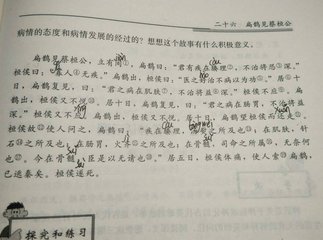 二十六 扁鹊见蔡桓公
病情的态度和病情发展的经过的？想想这个故事有什么积极意义。
扁鹊见蔡桓公，立有间①，扁鹊曰："君有疾在腠理②，不治将恐深③。"
桓侯曰："寡人④无疾。"扁鹊出，桓侯曰："医之好治不病以为功⑤。"居⑥十
日，扁鹊复见，曰："君之病在肌肤⑦，不治将益⑧深。"桓侯不应⑨。扁鹊
出，桓侯又不悦⑩。居十日，扁鹊复见，曰："君之病在肠胃，不治将益
深。"桓侯又不应。扁鹊出，桓侯又不悦。居十日，扁鹊望桓侯而还走，
桓侯故使人问之，扁鹊曰："疾在腠理，汤熨之所及也；在肌肤，针
石之所及也；在肠胃，火齐之所及也；在骨髓，司命之所属，无奈何
也。今在骨髓，臣是以无请也。"居五日，桓侯体痛，使人索扁鹊，
已逃秦矣。桓侯遂死。
探究和练习